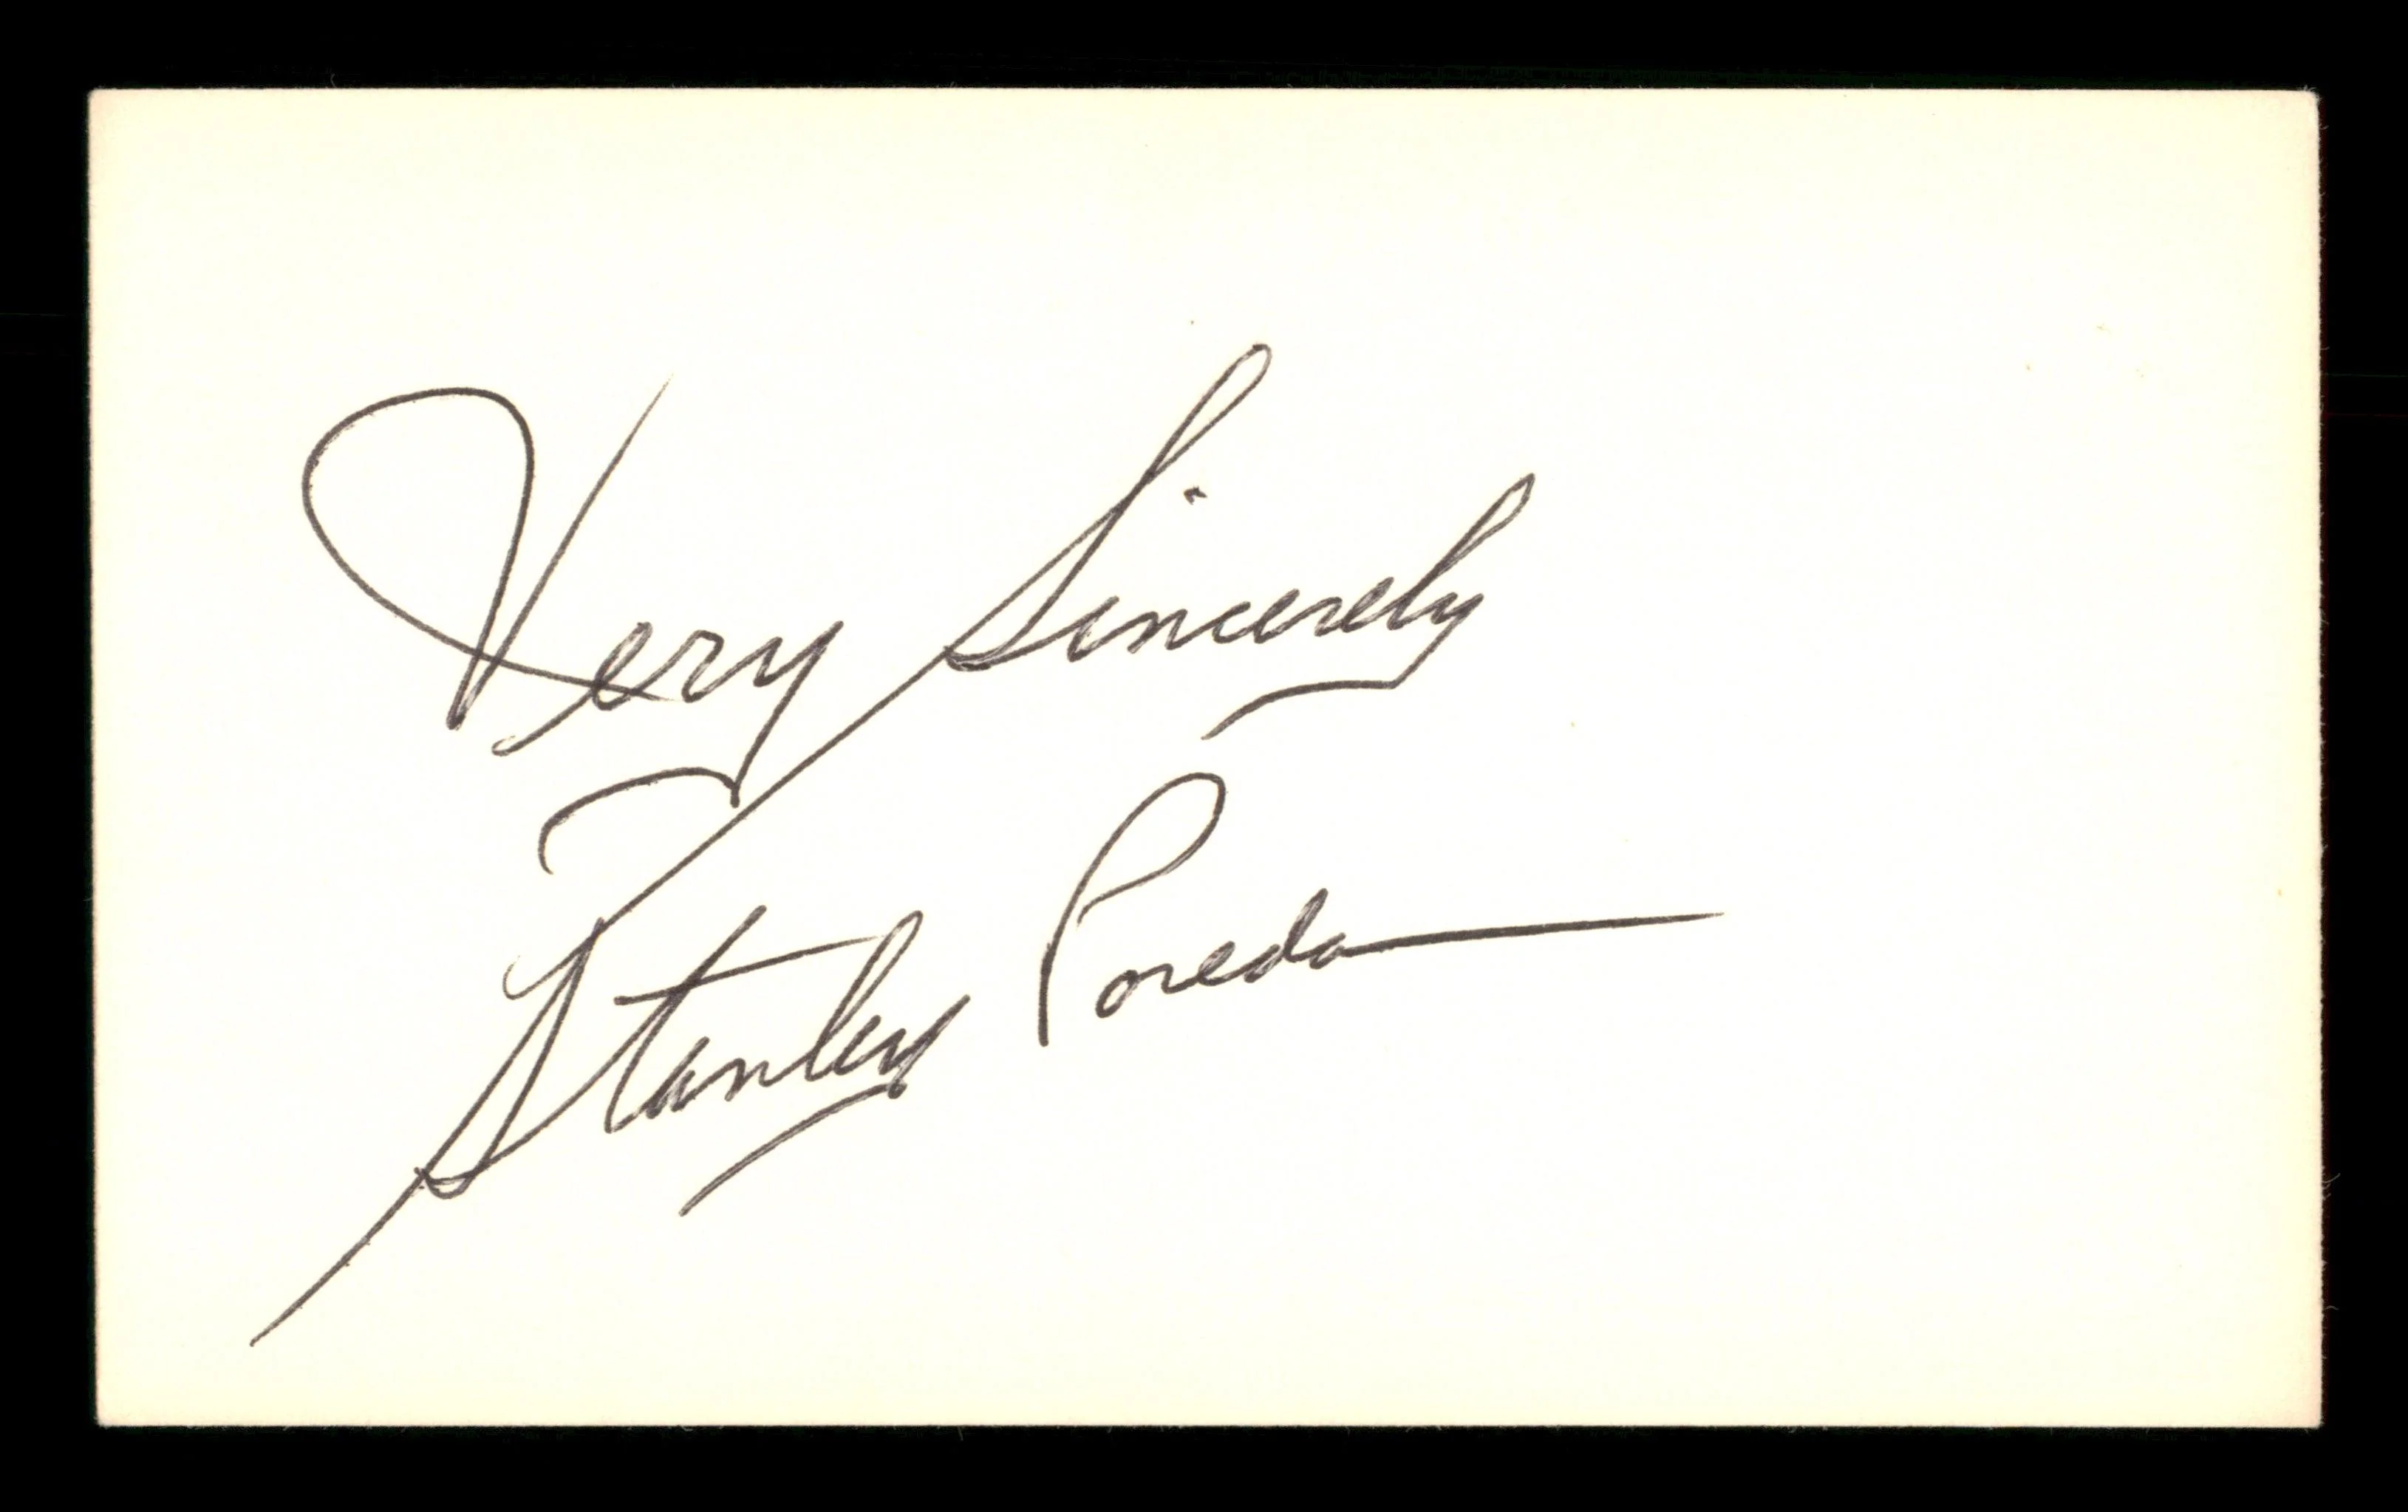 Very Sincerely
Stanley Poreda